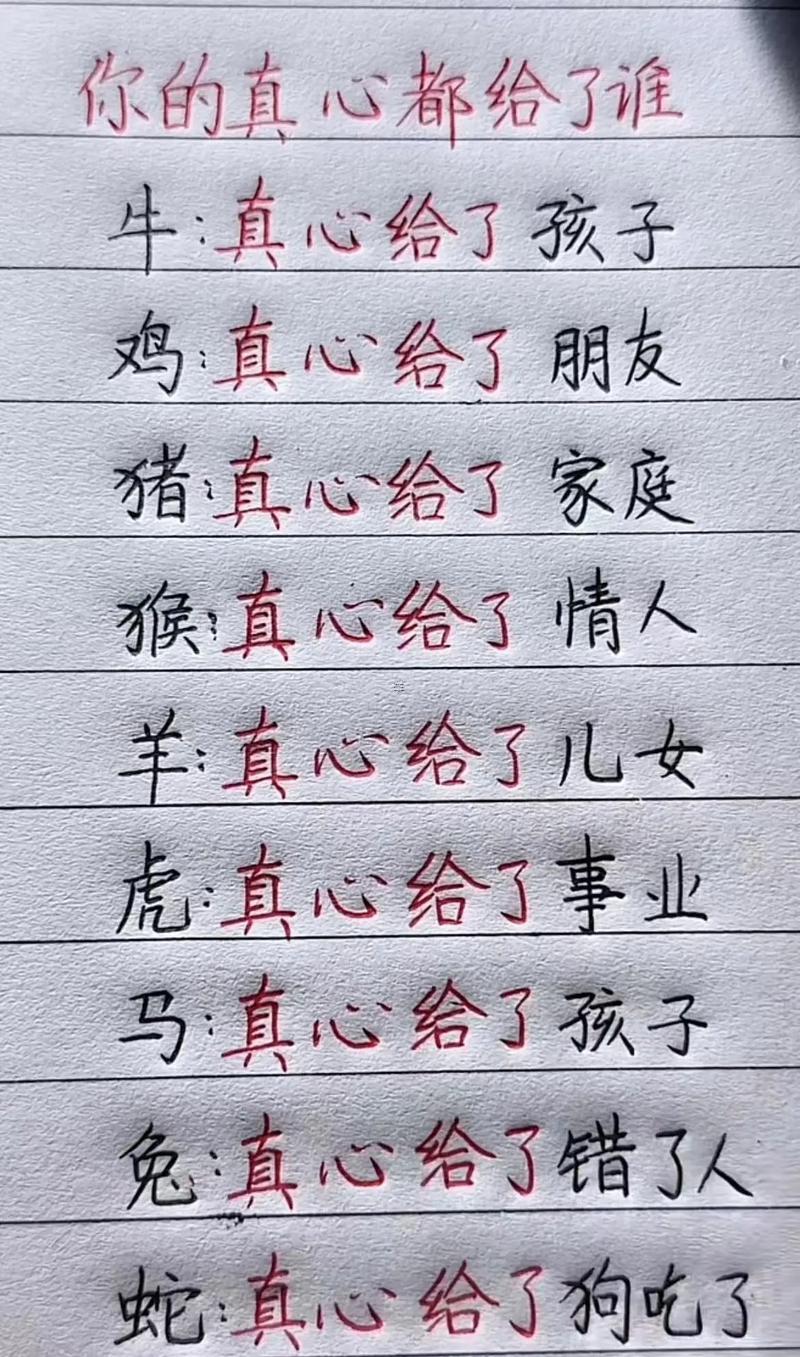 你的真心都给了谁
牛:真心给了孩子
鸡:真心给了朋友
猪:真心给了家庭
猴:真心给了情人
羊:真心给了儿女
虎:真心给了事业
马:真心给了孩子
兔:真心给了错了人
蛇:真心给了狗吃了